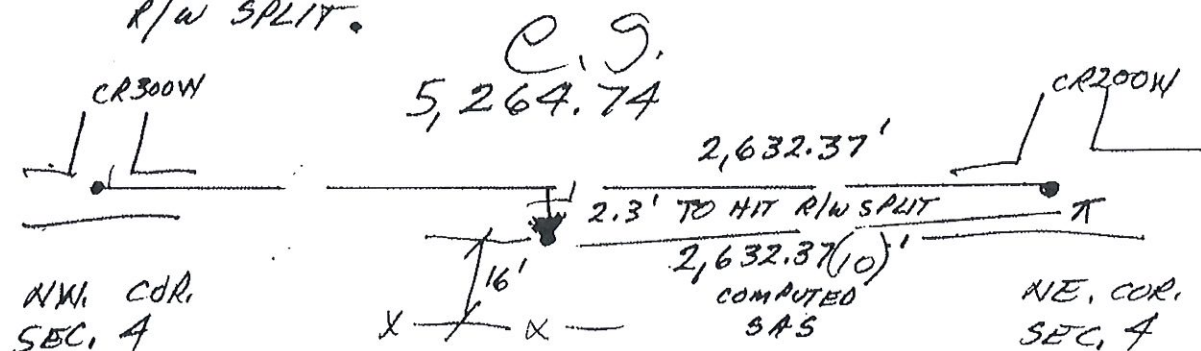 R/W SPLIT.
C. S.
5,264.74
CR300W
CR200W
2,632.37'
2.3' TO HIT R/W SPLIT
π
2,632.37(10)'
16'
COMPUTED
SAS
X X
NW. COR.
SEC. 4
NE. COR.
SEC. 4